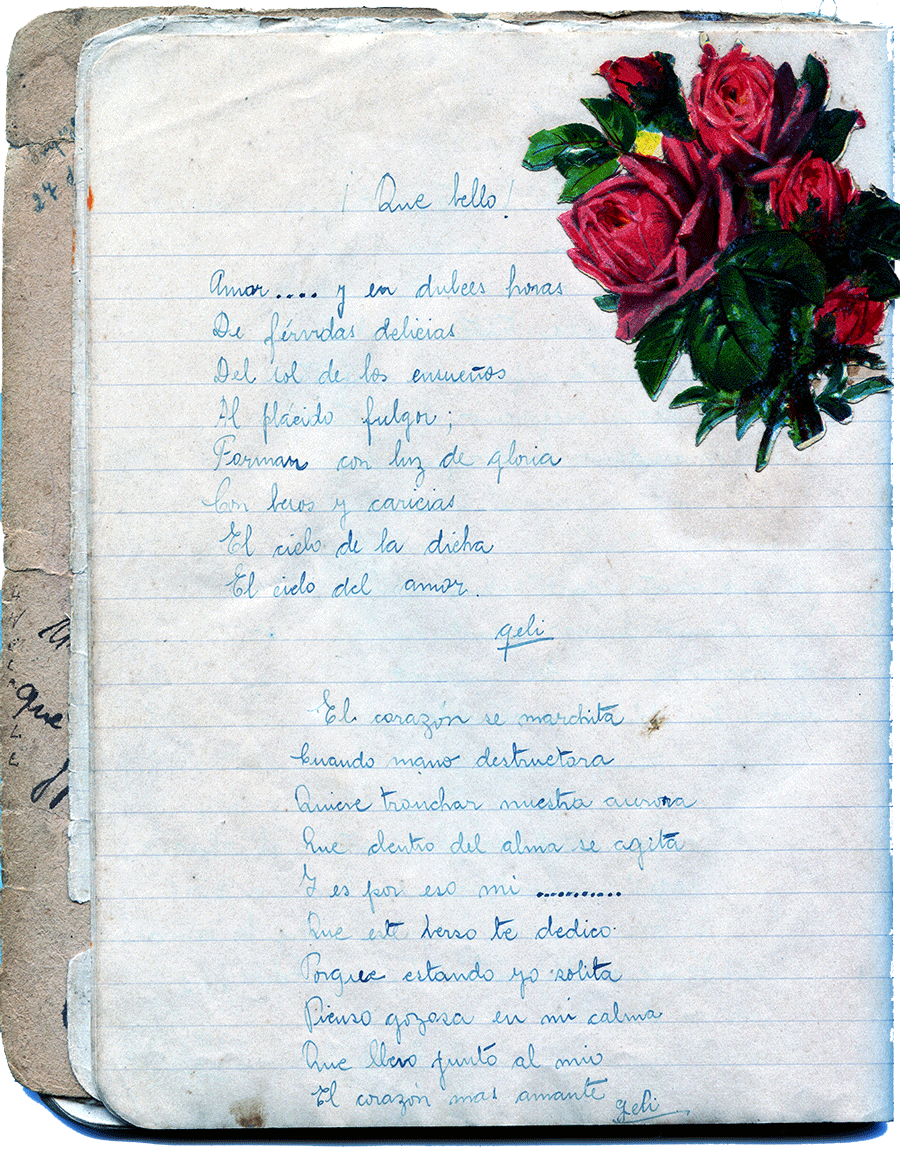 ¡Que bello!
Amor.... y en dulces horas
De férvidas delicias
Del sol de los ensueños
Al plácido fulgor;
Formar con luz de gloria
Con besos y caricias
El cielo de la dicha
El cielo del amor.
Geli
El corazón se marchita
Cuando mano destructora
Quiere tronchar nuestra aurora
Que dentro del alma se agita
Y es por eso mi ...........
Que este verso te dedico.
Porque estando yo solita
Pienso gozosa en mi calma
Que llevo junto al mio
El corazón mas amante
Geli
27
que